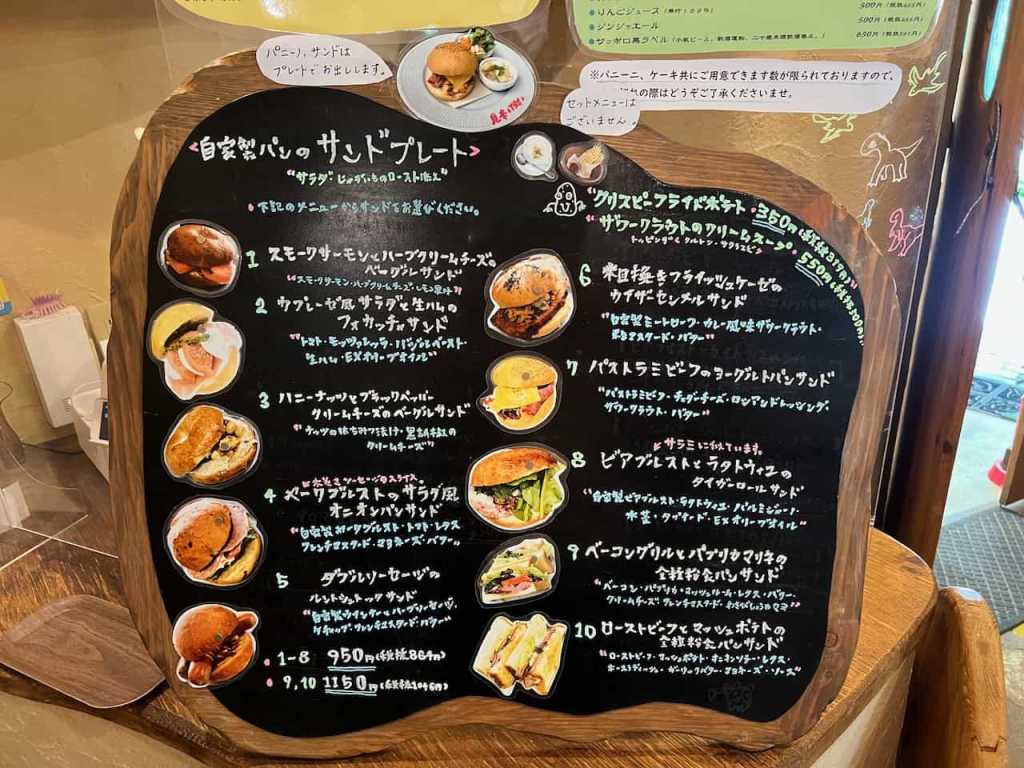 りんごジュース
500円
ジンジャエール
500円
サッポロ黒ラベル
650円
パニーノ、サンドは
プレートでお出しします。
※パニーニ、ケーキ共にご用意できます数が限られておりますので、
の際はどうぞご了承くださいませ。
セットメニューは
ございません。
自家製パンのサンドプレート
"サラダ・じゃがいものロースト添え"
下記のメニューからサンドをお選びください。
1 スモークサーモンとハーブクリームチーズの
ベーグルサンド
"スモークサーモン・ハーブクリームチーズ・レモン果汁"
2 カプレーゼ風サラダと生ハムの
フォカッチャサンド
"トマト・モッツァレッラ・バジルペースト・
生ハム・EXオリーブオイル"
3 ハニーナッツとブラックペッパー
クリームチーズのベーグルサンド
"ナッツのはちみつ漬け・黒胡椒の
クリームチーズ"
大きなソーセージのスライス
4 ベークブルストのサラダ風
オニオンパンサンド
"自家製ベークブルスト・トマト・レタス
フレンチマスタード・マヨネーズ・バター"
5 ダブルソーセージの
ルントシュトックサンド
"自家製ウインナーとハーブソーセージ・
ケチャップ・フレンチマスタード・バター"
1-8 950円(税抜864円)
9,10 1150円(税抜1046円)
"クリスピーフライドポテト・350円
"ザワークラウトのクリームスープ・550円
トッピング
6 粗挽きフライッシュケーゼの
カイザーセンメルサンド
"自家製ミートローフ・カレー風味ザワークラウト・
マスタード・バター"
7 パストラミビーフのヨーグルトパンサンド
"パストラミビーフ・チェダーチーズ・ロシアンドレッシング・
ザワークラウト・バター"
サラミに似ています。
8 ビアブルストとラタトゥイユの
タイガーロールサンド
"自家製ビアブルスト・ラタトゥイユ・パルミジャーノ・
水菜・マスタード・EXオリーブオイル"
9 ベーコングリルとパプリカマリネの
全粒粉食パンサンド
"ベーコン・パプリカ・マッシュルーム・レタス・バター・
クリームチーズ・フレンチマスタード・わさびしょうゆマヨ"
10 ローストビーフとマッシュポテトの
全粒粉食パンサンド
"ローストビーフ・マッシュポテト・オニオンソテー・レタス・
ホースラディッシュ・ガーリックバター・マヨネーズ・ソース"